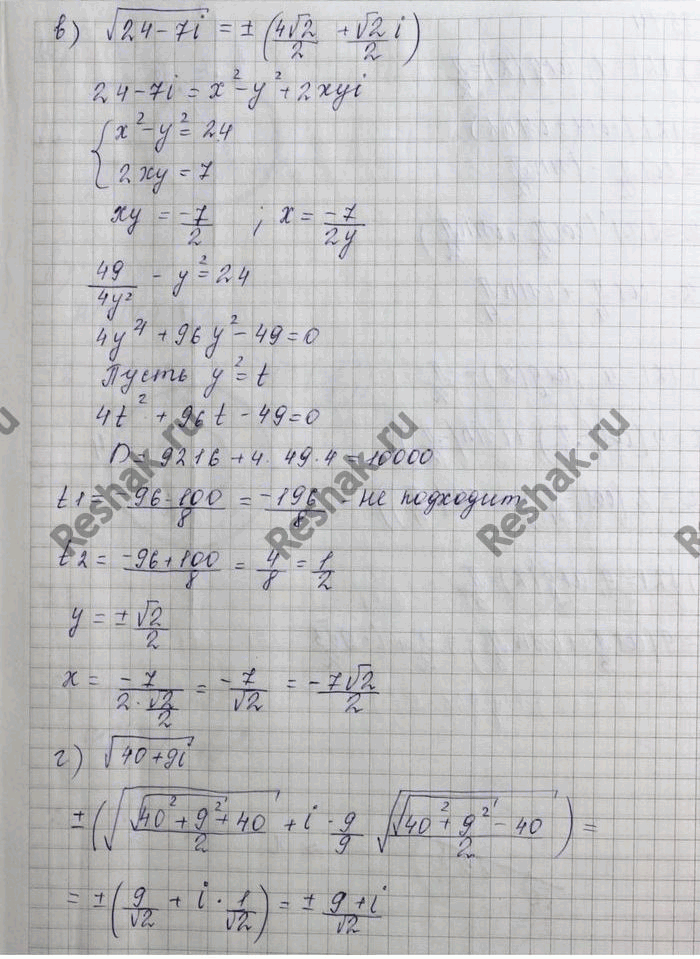 в) √(24-7i) = ±(4√2/2 + √2/2 i)
24-7i = x²-y²+2xyi
{x²-y²=24
{2xy=7
xy = -7/2 ; x = -7/2y
49/4y² - y² = 24
4y⁴ + 96y² - 49 = 0
Пусть y² = t
4t² + 96t - 49 = 0
D = 9216 + 4·49·4 = 10000
t1 = -96-100/8 = -196/8 - не подходит
t2 = -96+100/8 = 4/8 = 1/2
y = ±√2/2
x = -7/(2·√2/2) = -7/√2 = -7√2/2
г) √(40+9i)
±(√((√(40²+9²)+40)/2) + i·9/9 √((√(40²+9²)-40)/2)) =
= ±(9/√2 + i·1/√2) = ± 9+i/√2
Reshak.ru
Reshak.ru